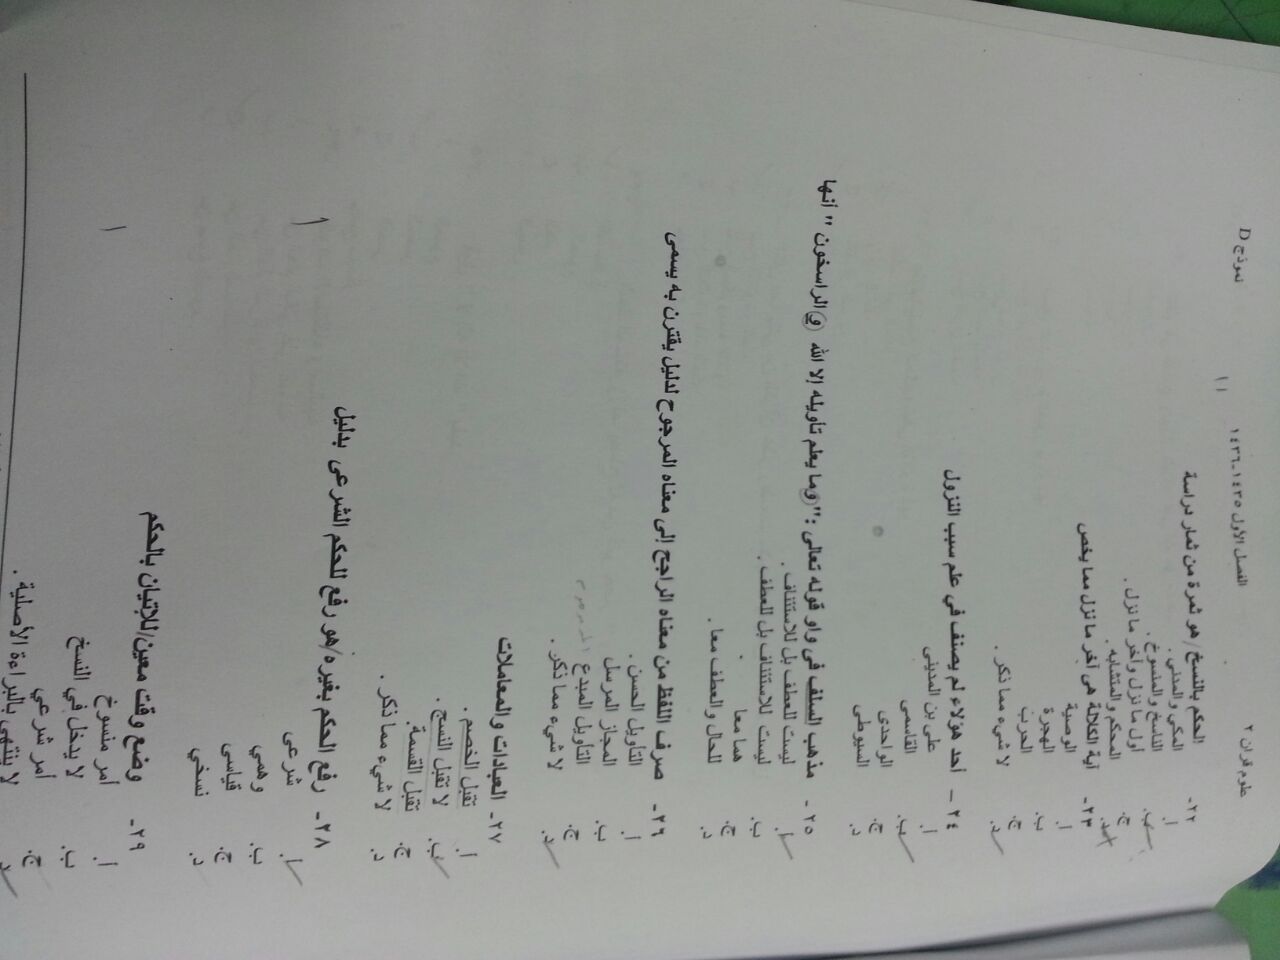 علوم قران ٢ الفصل الأول ١٤٣٥-١٤٣٦ ١١ نموذج D
٢٢- الحكم بالنسخ /هو ثمرة من ثمار دراسة
أ. المكي والمدني .
ب. الناسخ والمنسوخ .
ج. أول ما نزل وآخر ما نزل .
د. المحكم والمتشابه .
٢٣- آية الكلالة هي آخر ما نزل مما يخص
أ. الوصية
ب. الهجرة
ج. الحرب
د. لا شيء مما ذكر .
٢٤ – أحد هؤلاء لم يصنف في علم سبب النزول
أ. علي بن المديني
ب. القاسمي
ج. الواحدى
د. السيوطي
٢٥ - مذهب السلف في واو قوله تعالى :"وما يعلم تاويله إلا الله والراسخون " أنها
أ. ليست للعطف بل للاستئناف .
ب. ليست للاستئناف بل للعطف .
ج. هما معا .
د. للحال والعطف معا .
٢٦ - صرف اللفظ من معناه الراجح إلى معناه المرجوح لدليل يقترن به يسمى
أ. التاويل الحسن .
ب. المجاز المرسل
ج. التاويل المبدع
د. لا شيء مما ذكر .
٢٧- العبادات والمعاملات
أ. تقبل الخصم .
ب. لا تقبل النسخ .
ج. تقبل القسمة .
د. لا شيء مما ذكر .
٢٨- رفع الحكم بغيره/هو رفع للحكم الشرعى بدليل
أ. شرعى
ب. وهمي
ج. قياسي
د. نسخي
٢٩- وضع وقت معين/للإتيان بالحكم
أ. أمر منسوخ
ب. لا يدخل في النسخ
ج. أمر شرعي
د. لا ينتهي بالبراءة الأصلية .